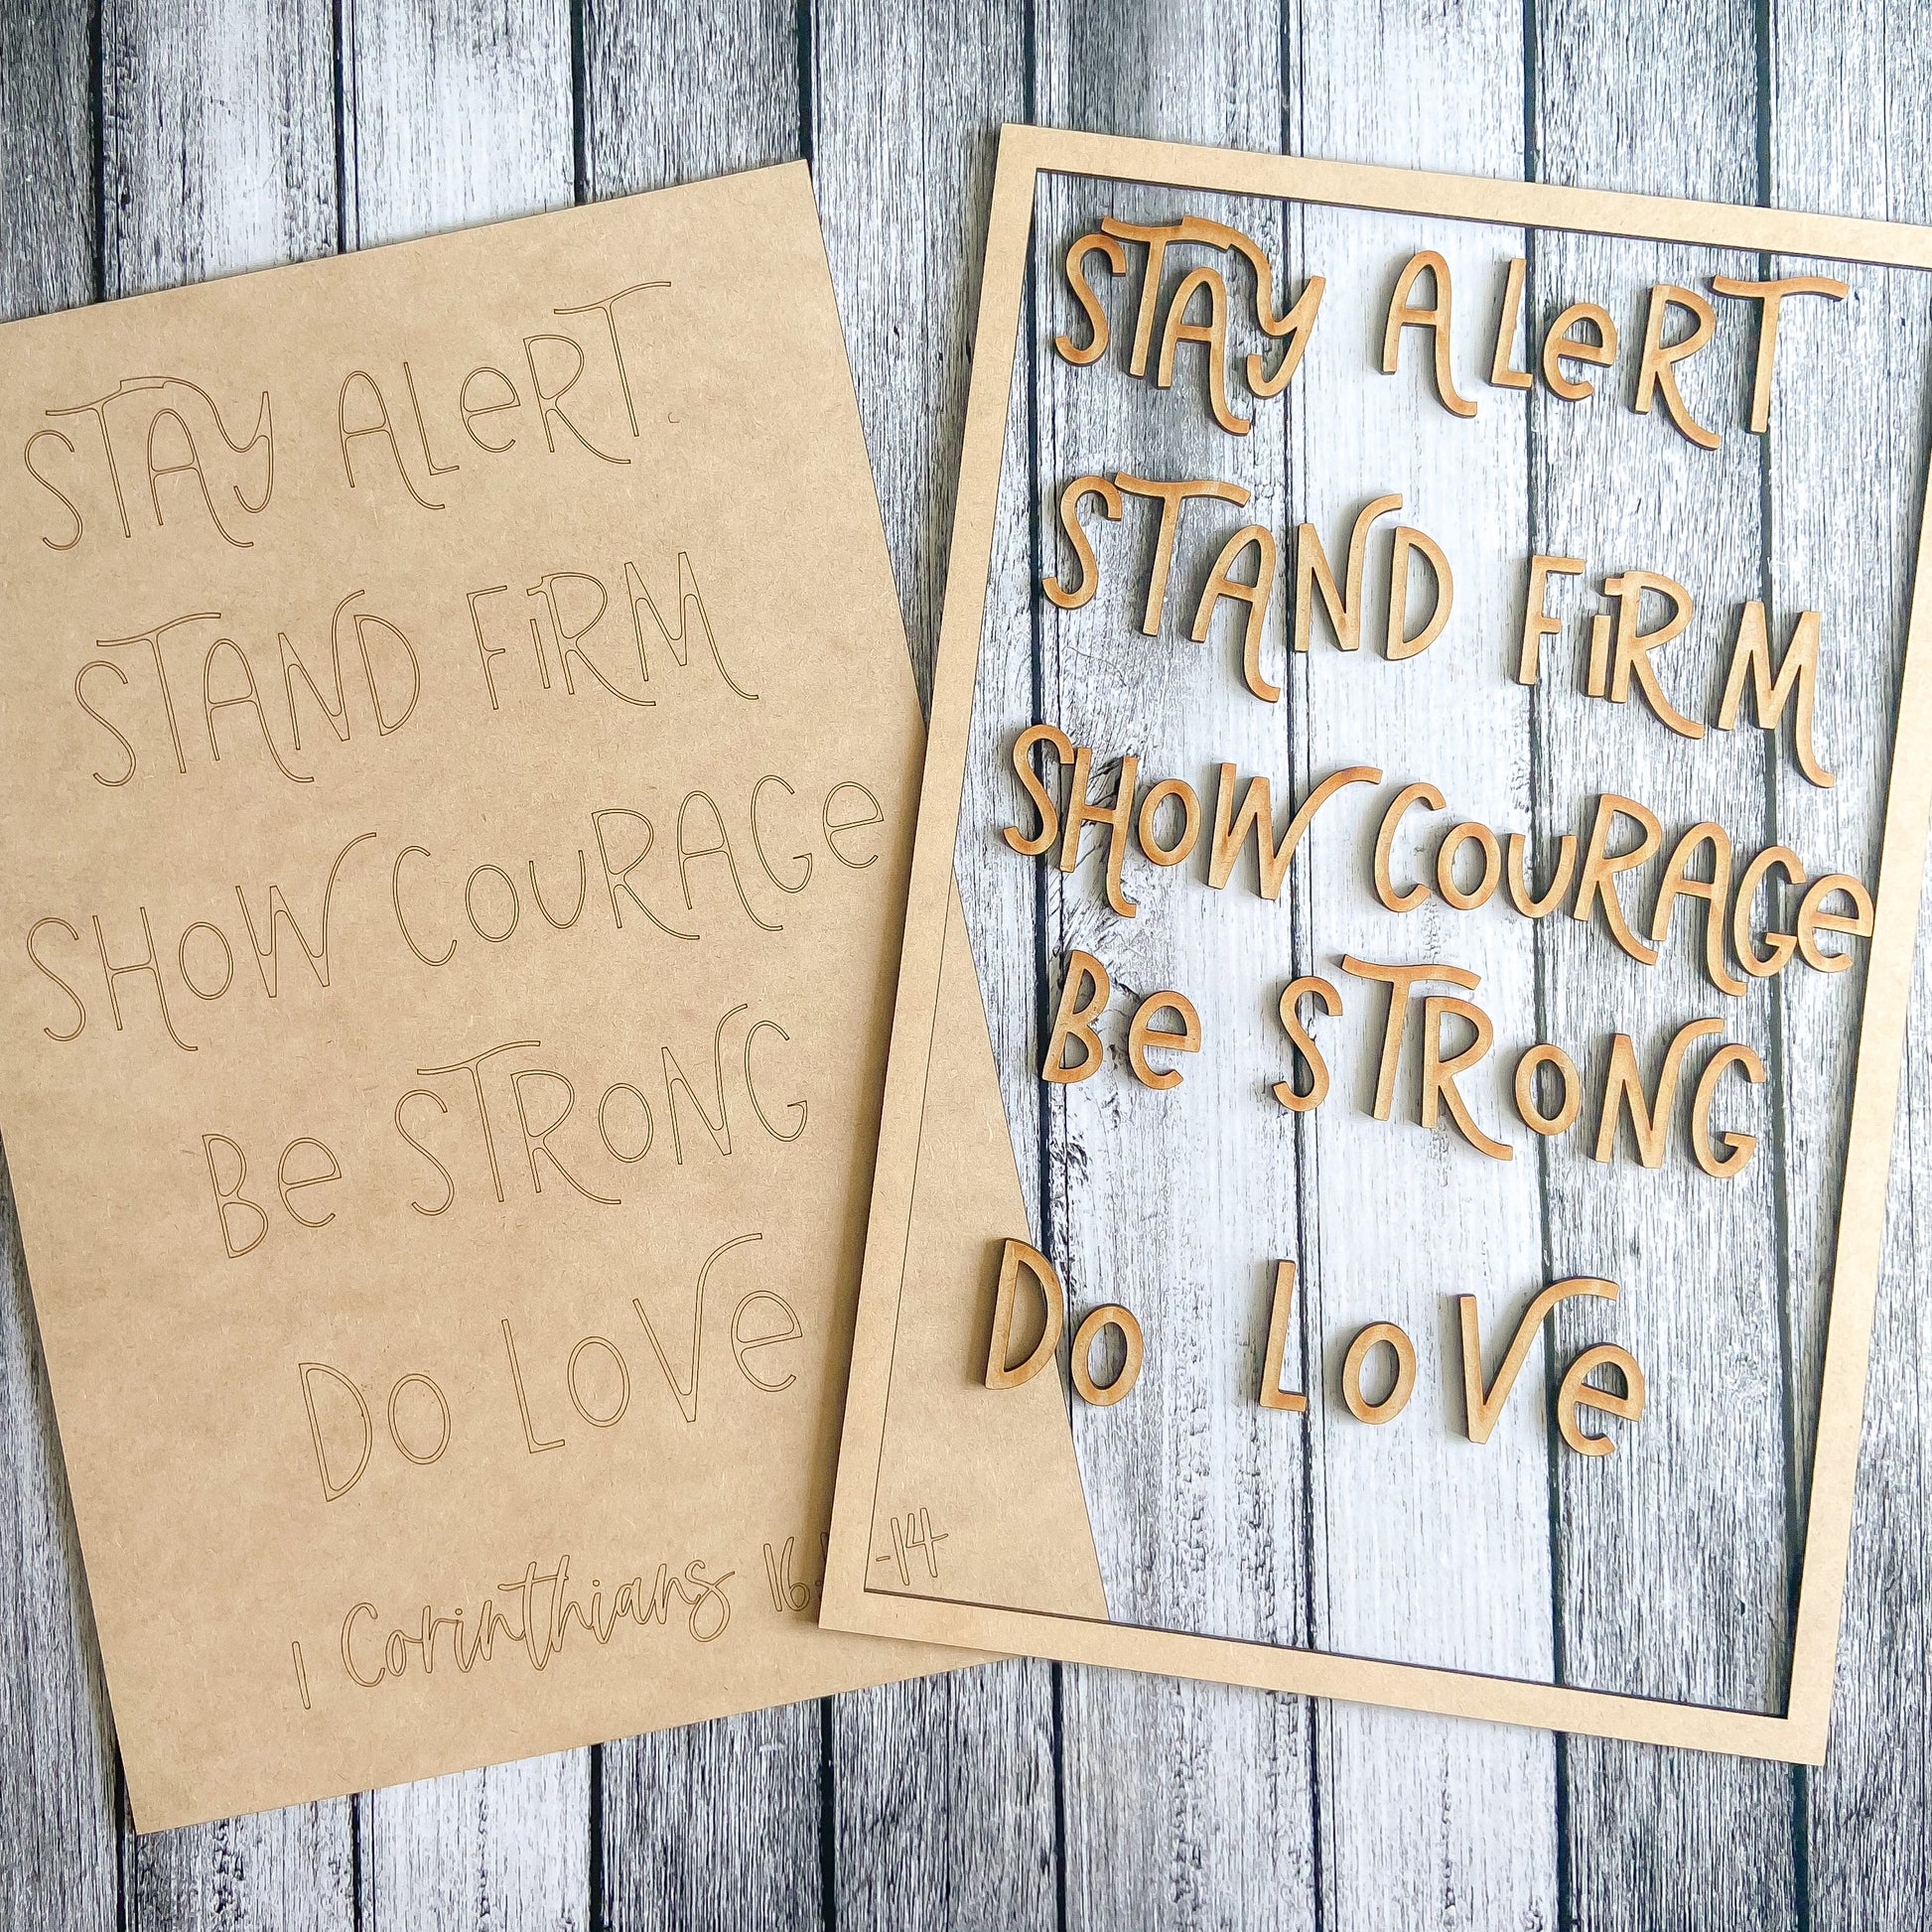 STAY ALeRT
STAND FiRM
SHOW COURAGe
Be STRONG
DO LOVe
1 Corinthians 16:
-14
STAY ALeRT
STAND FiRM
SHOW COURAGe
Be STRONG
DO LOVe